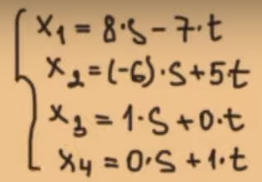 x₁ = 8·s - 7·t
x₂ = (-6)·s + 5t
x₃ = 1·s + 0·t
x₄ = 0·s + 1·t